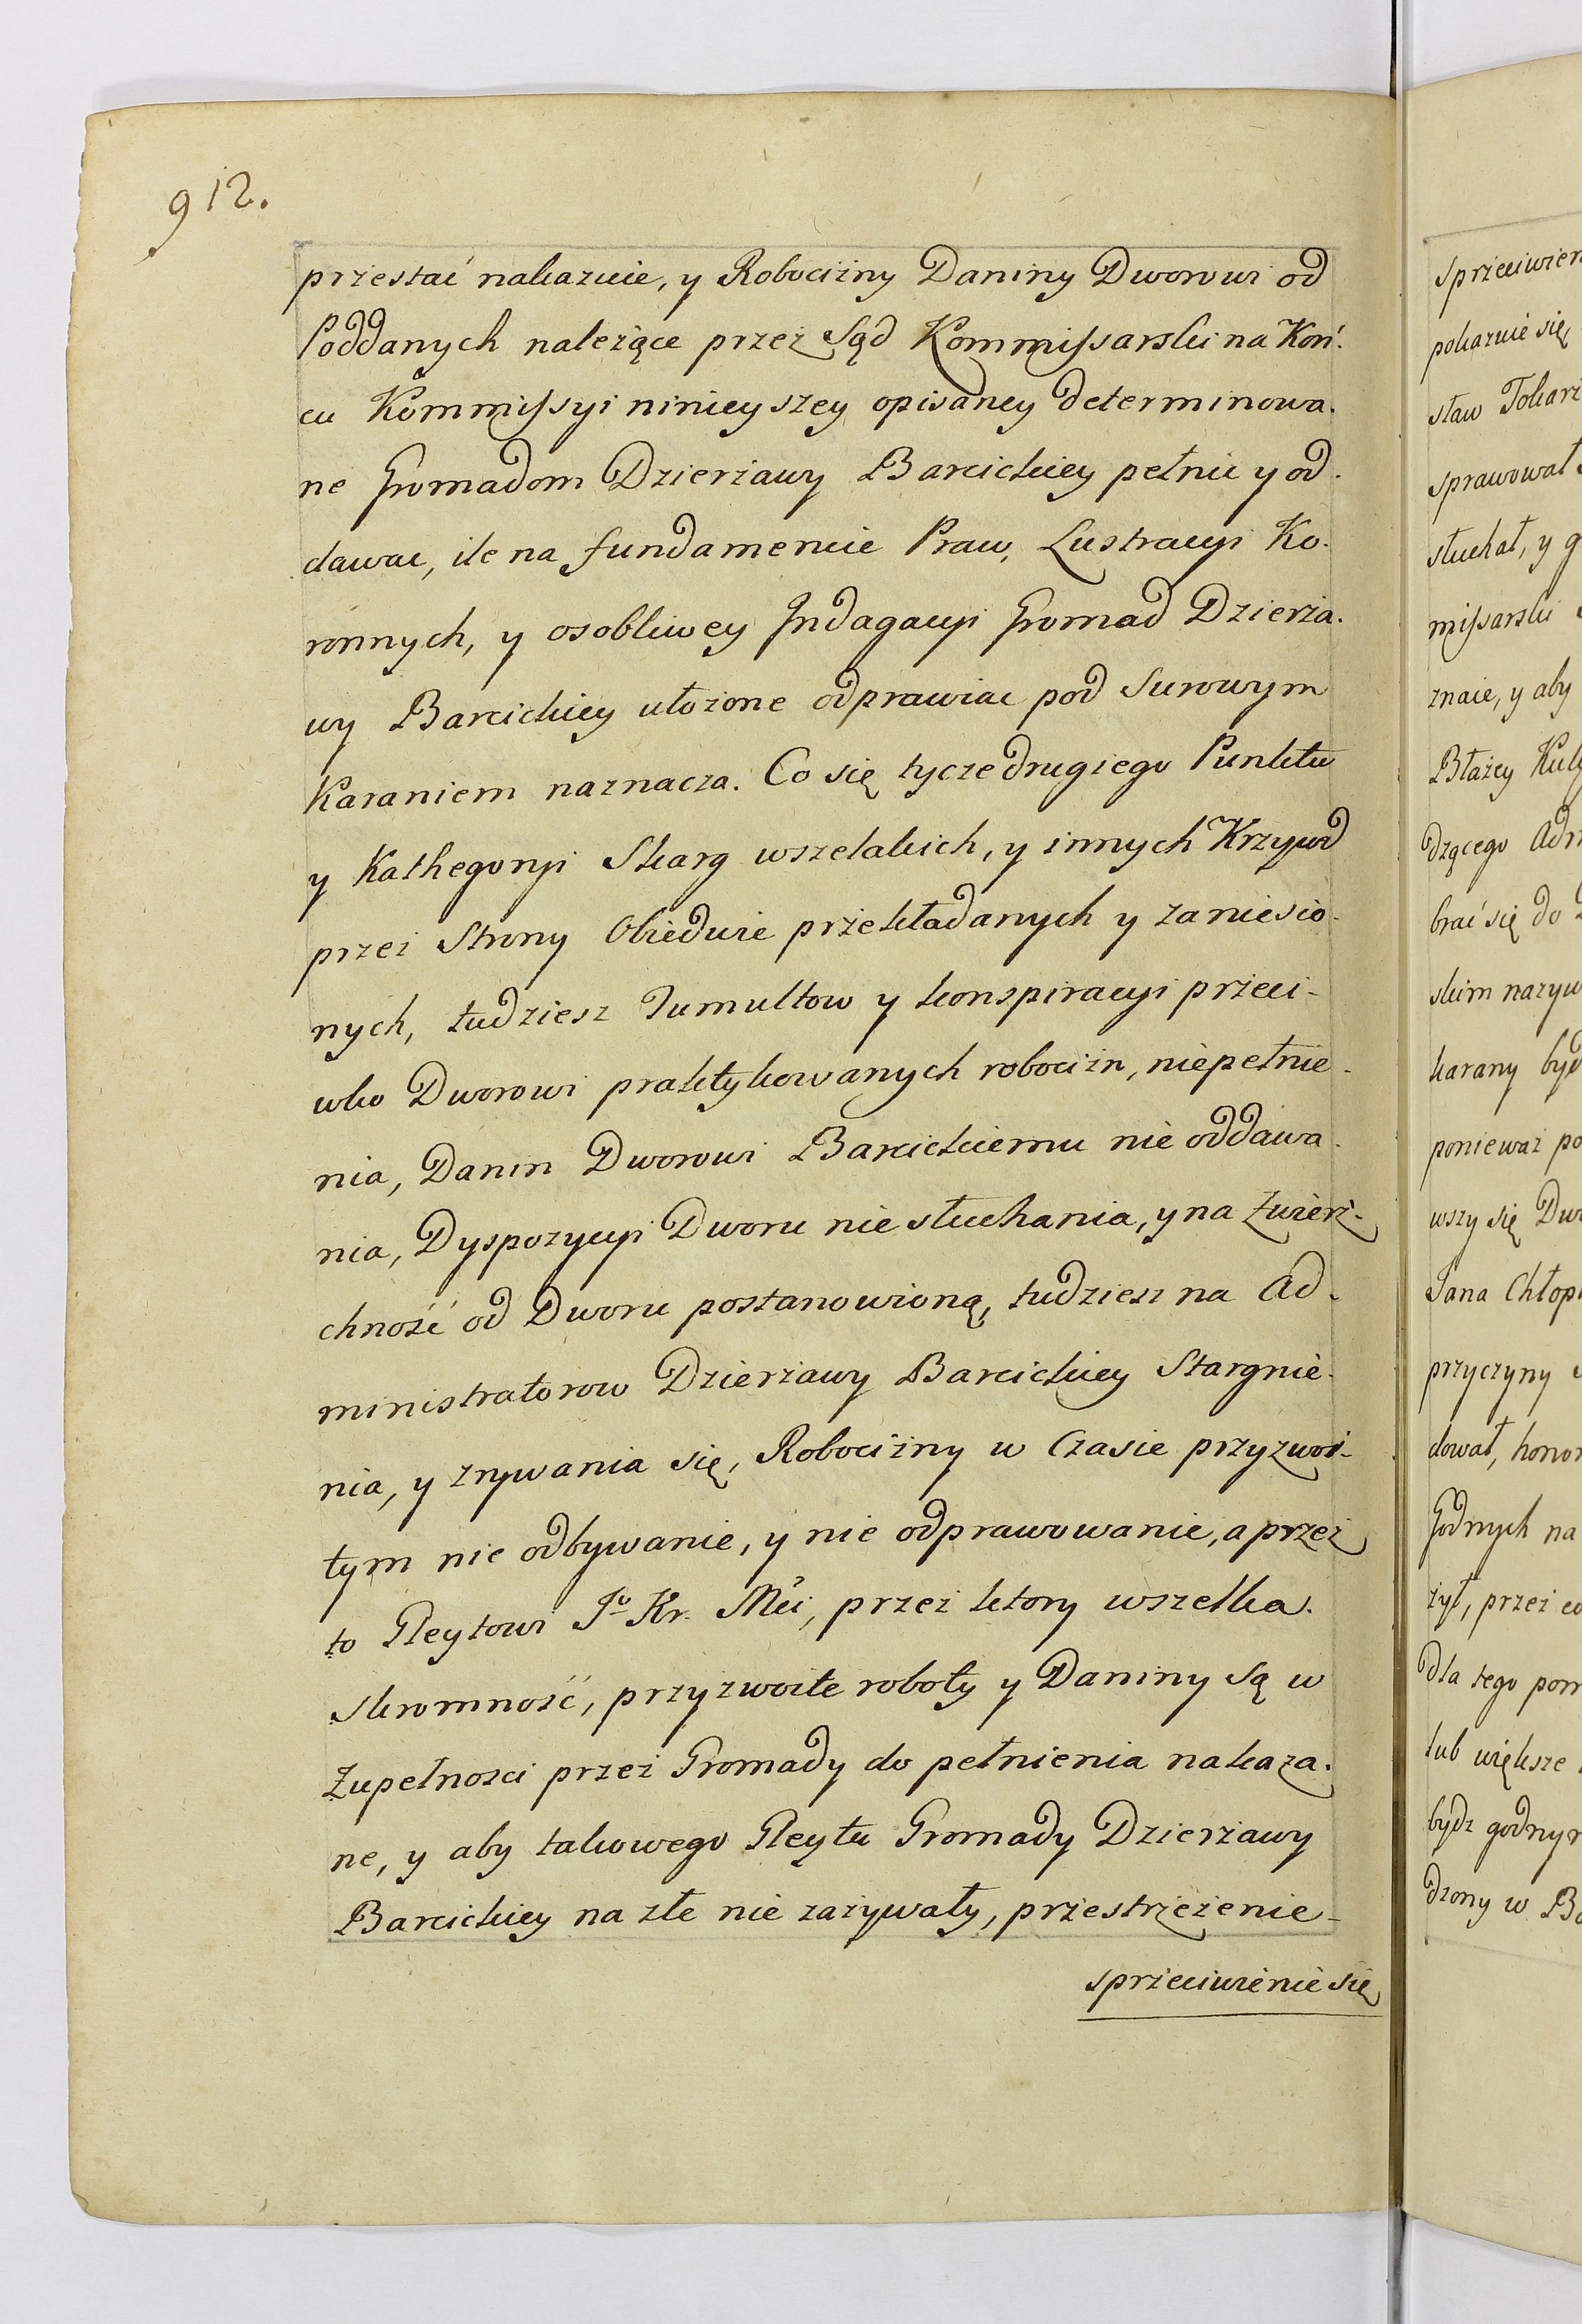 912.
przestać nakazuie, y Robocizny Daniny Dworowi od
Poddanych należące przez Sąd Kommissarski na Koń.
cu Kommissyi ninieyszey opisaney determinowa.
ne Gromadom Dzierżawy Barcickiey pełnic y od.
dawac, ile na fundamencie Praw, Lustracyi Ko.
ronnych, y osobliwey Indagacyi Gromad Dzierża.
wy Barcickiey ułożone odprawiac pod Surowym
Karaniem naznacza. Co się tycze drugiego Punktu
y Kathegoryi Skarg wszelakich, y innych Krzywd
przez Strony Obiedwie przekładanych y zaniesio-
nych, tudziesz Tumultow y konspiracyi przeci-
wko Dworowi praktykowanych robocizn, niepełnie-
nia, Danin Dworowi Barcickiemu nie oddawa-
nia, Dyspozycyi Dworu nie słuchania, y na Zwierz-
chność od Dworu postanowioną, tudziesz na Ad-
ministratorow Dzierżawy Barcickiey Stargnie-
nia, y zrywania się, Robocizny w Czasie przyzwoi-
tym nie odbywanie, y nie odprawowanie, a przez
to Gleytowi Jo Kr. Mci, przez ktory wszelka.
skromność, przyzwoite roboty y Daniny są w
Zupełnosci przez Gromady do pełnienia nakaza.
ne, y aby takowego Gleytu Gromady Dzierżawy
Barcickiey na złe nie zażywały, przestrzeżenie-
sprzeciwienie się
sprzeciwien
pokazuie się
sław Tokarz
sprawował
słuchał, y g
missarski
znaie, y aby
Błażey Kul
dzącego Adm
brać się do
skim nazyw
karany byd
ponieważ po
wszy się Dwo
Jana Chłop
przyczyny
dował, honor
Godnych na
żył, przez co
dla tego pom
lub większe
bydz godnym
dzony w Ba